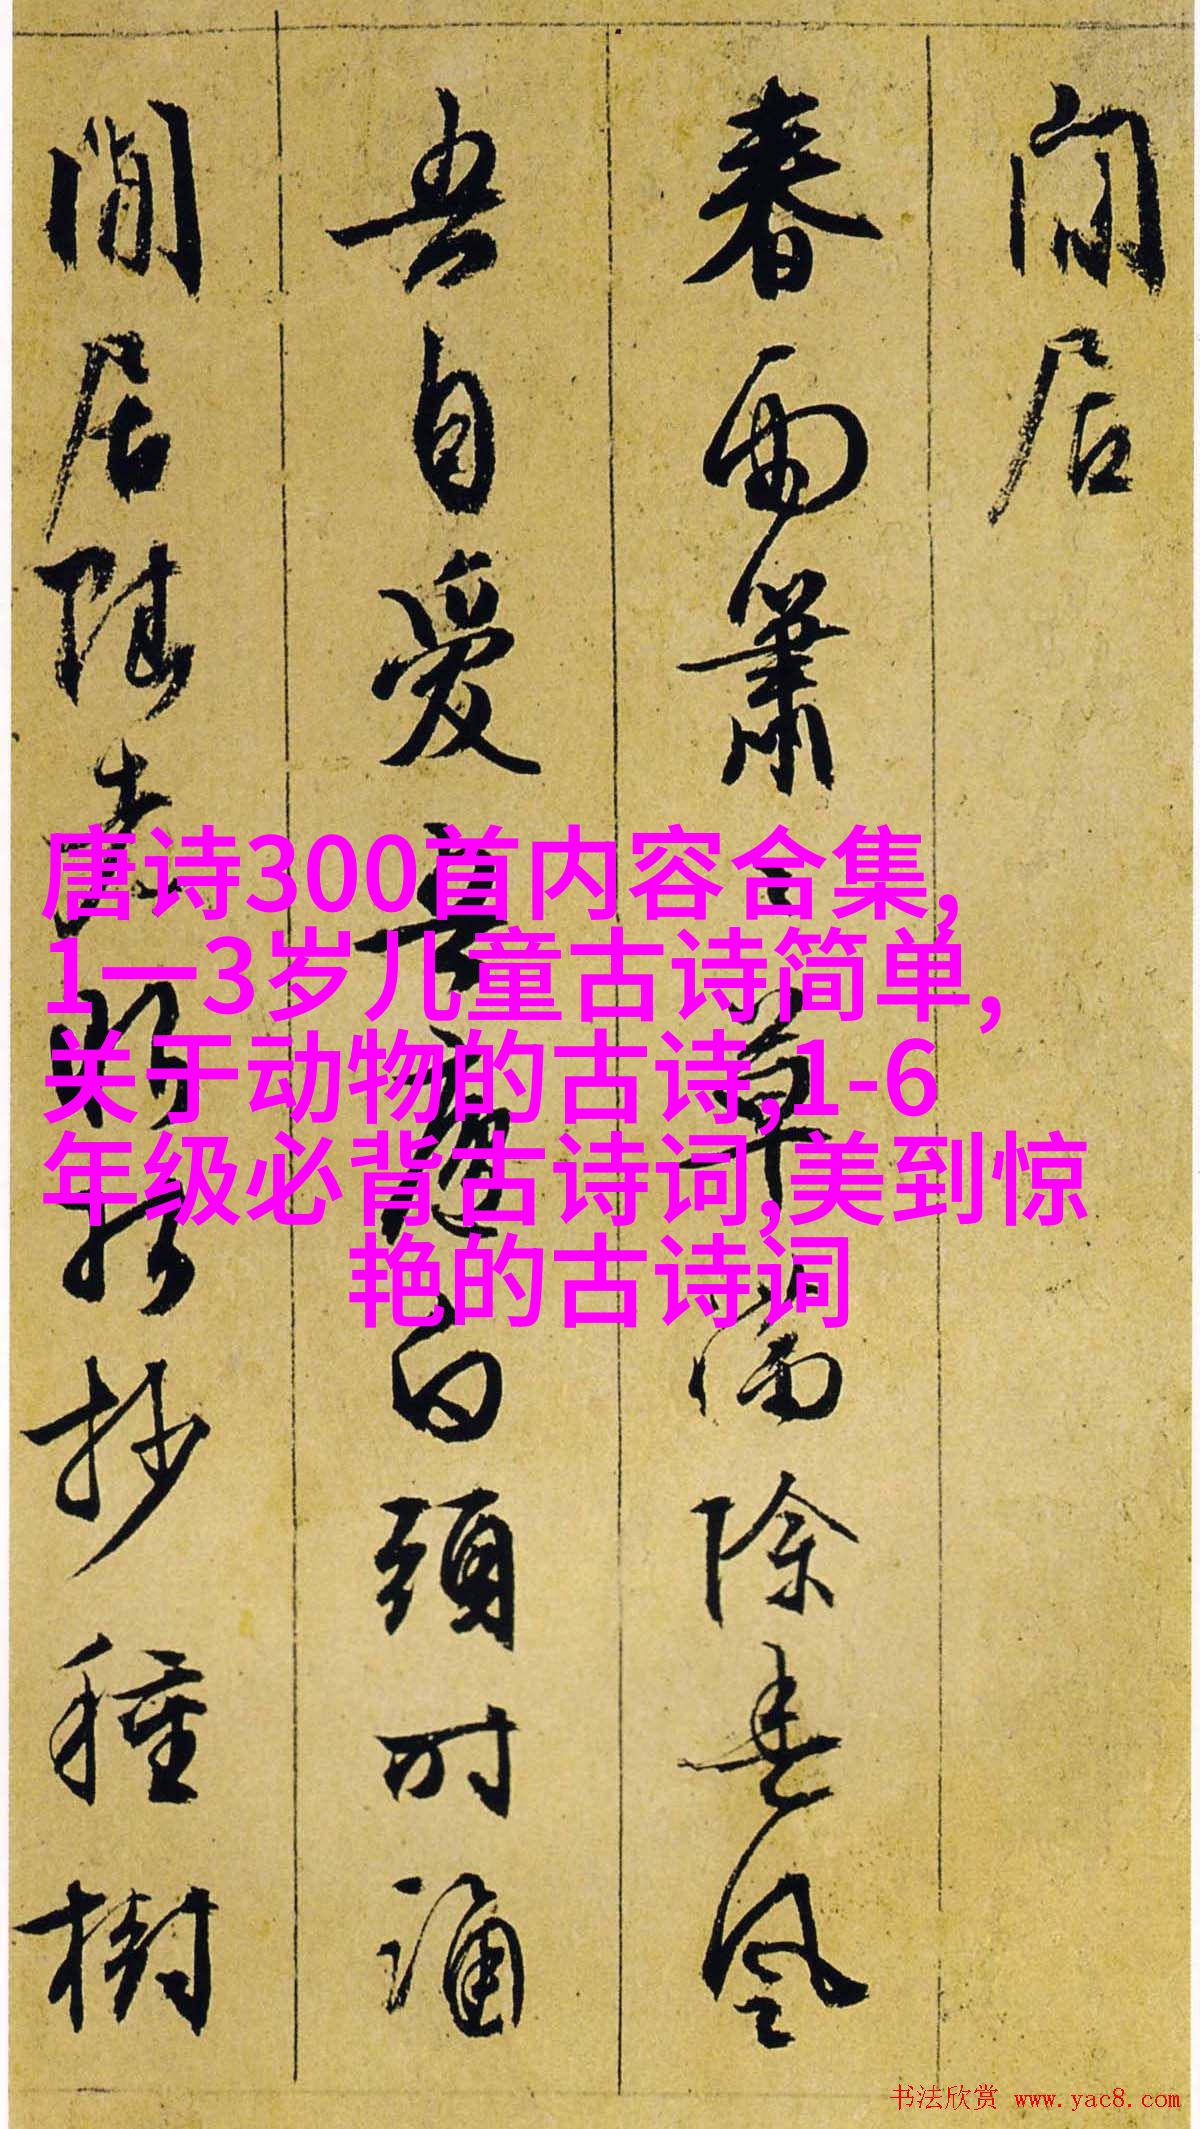 闲居
春雨萧〻草满除春风
吾自爱吾庐白头时诵
閒居
抄種樹
唐诗300首内容合集,
1一3岁儿童古诗简单,
关于动物的古诗,1-6
年级必背古诗词,美到惊
艳的古诗词
书法欣赏 www.yac8.com